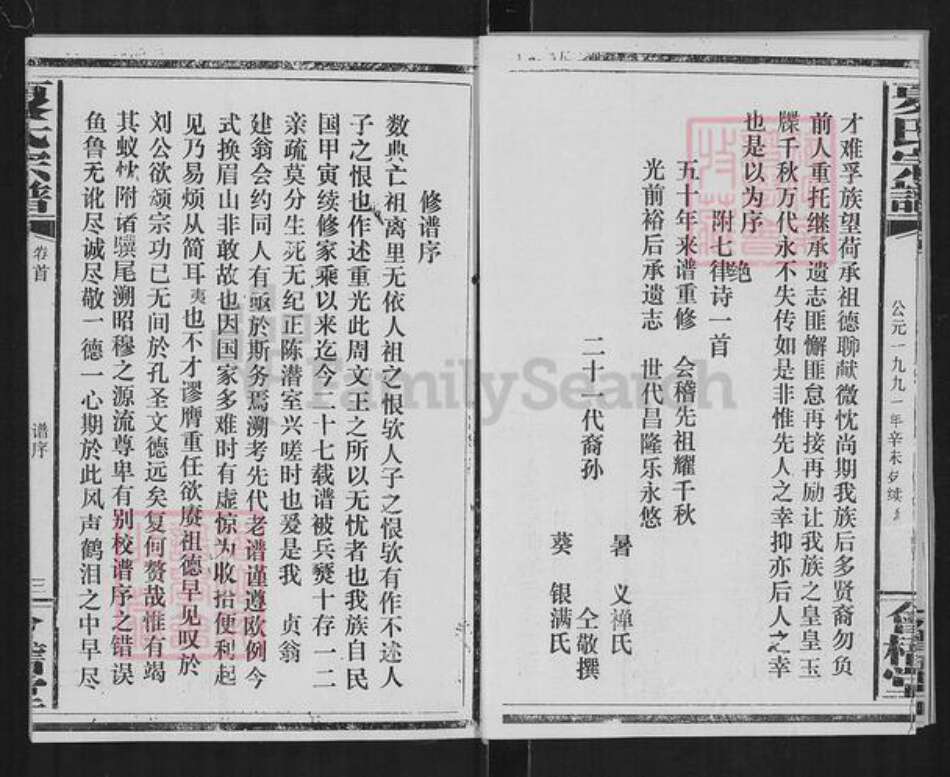 才难孚族望荷承祖德聊献微忱尚期我族后多贤裔勿负
前人重托继承遗志匪懈匪怠再接再励让我族之皇皇玉
牒千秋万代永不失传如是非惟先人之幸抑亦后人之幸
也是以为序
附七律诗一首
绝
五十年来谱重修 会稽先祖耀千秋
光前裕后承遗志 世代昌隆乐永悠
二十一代裔孙
暑 义禅氏
仝敬撰
葵 银满氏
公元一九九一年辛未岁续
修谱序
数典亡祖离里无依人祖之恨欤人子之恨欤有作不述人
子之恨也作述重光此周文王之所以无忧者也我族自民
国甲寅续修家乘以来迄今二十七载谱被兵燹十存一二
亲疏莫分生死无纪正陈潜室兴嗟时也爰是我 贞翁
建翁会约同人有亟於斯务焉溯考先代老谱谨遵欧例今
式换眉山非敢故也因国家多难时有虚惊为收拾便利起
见乃易烦从简耳夷也不才谬膺重任欲赓祖德早见叹於
刘公欲颂宗功已无间於孔圣文德远矣复何赞哉惟有竭
其蚁忱附诸骥尾溯昭穆之源流尊卑有别校谱序之错误
鱼鲁无讹尽诚尽敬一德一心期於此风声鹤泪之中早尽
氏宗谱
卷首
谱序
三
会稽堂
FamilySearch